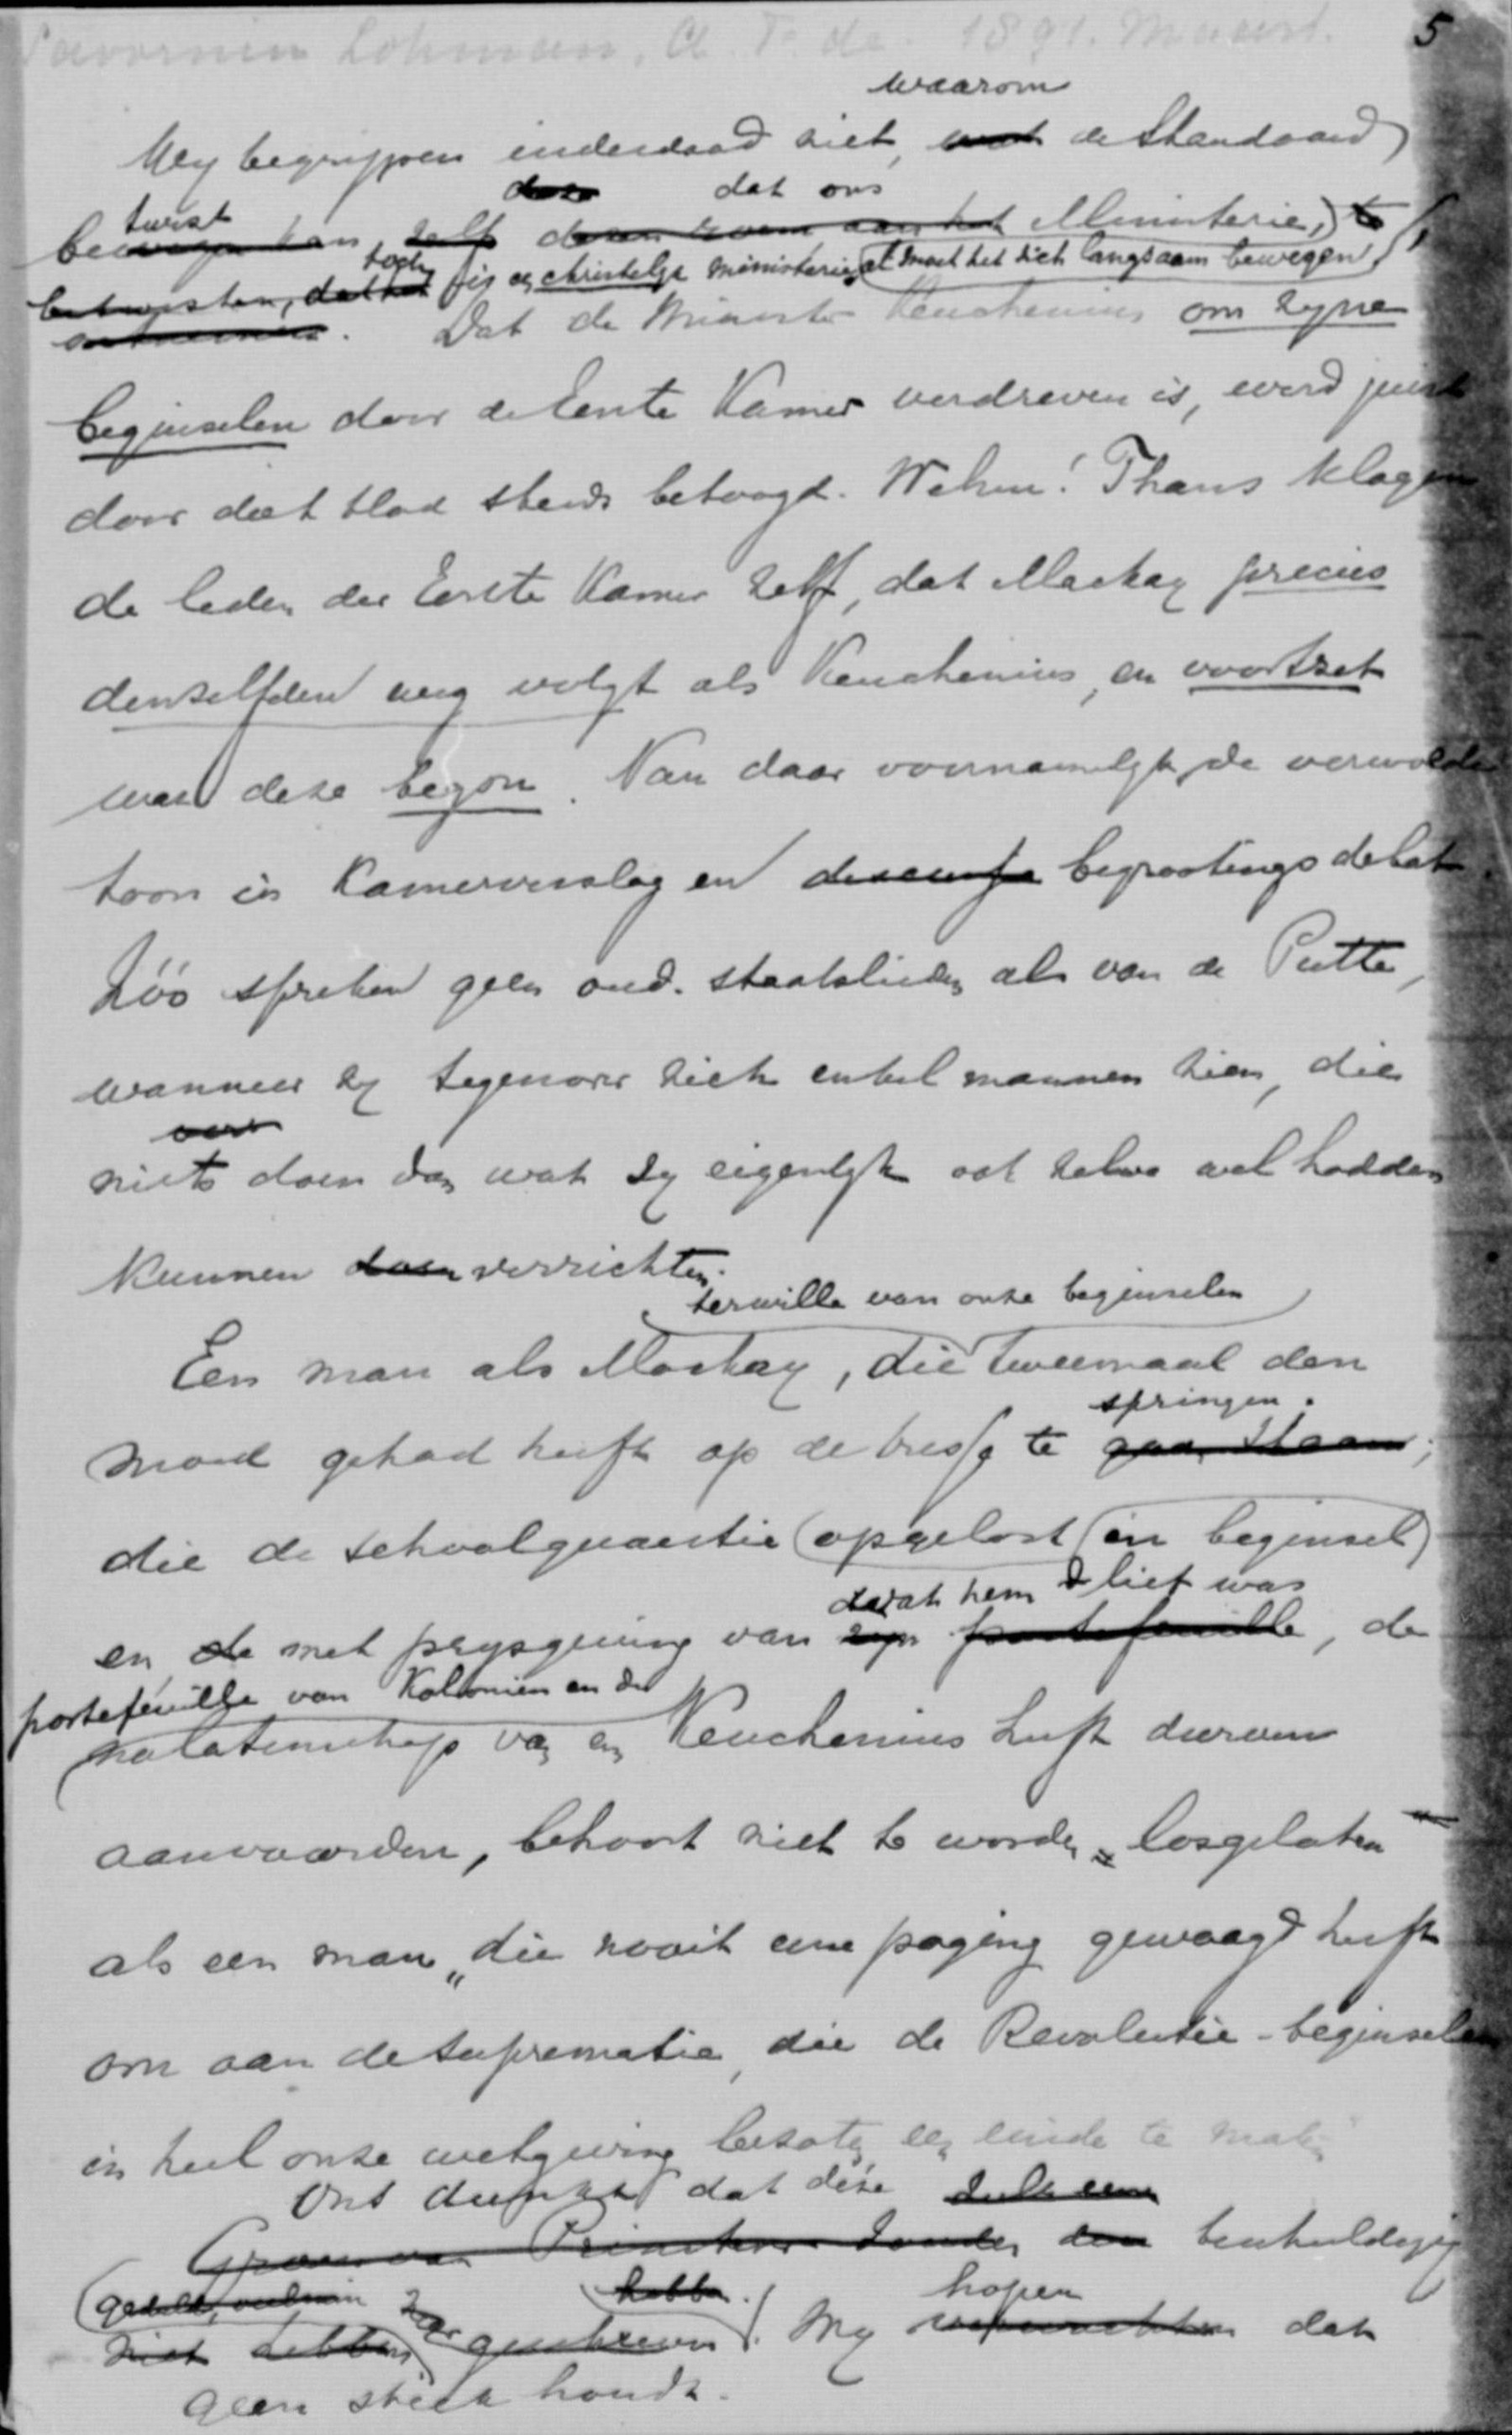 Savornin Lohman, A F. de 1891. Maart.
5
waarom
Wy begrypen inderdaad niet, wat de Standaard
dat ons
twist
bewegen kan, zelf dezen roem aan het Ministerie, te
toch
betwisten, dat het christelyk ministerie, al moet het zich langzaam bewegen
Dat de Minister Keuchenius om zyne
beginselen door de Eerste Kamer verdreven is, werd juist
door dat blad steeds betoogd. Welnu! Thans klagen
de leden der Eerste Kamer zelf, dat Mackay precies
denzelfden weg volgt als Keuchenius, en voortzet
wat deze begon. Van daar voornamelyk de verwoede
toon in Kamerverslag en begrootingsdebat.
Zóó spreken geen oud-staatslieden als van de Putte,
wanneer zy tegenover zich enkel mannen zien, die
niets doen dan wat zy eigenlyk ook zelve wel hadden
kunnen doen verrichten.
terwille van onze beginselen
Een man als Mackay, die tweemaal den
springen.
moed gehad heeft op de bresse te gaan staan;
die de schoolquaestie opgelost in beginsel
dat hem lief was
en de met prysgeving van zyn portefeuille, de
portefeuille van Koloniën en de
nalatenschap van een Keuchenius heeft durven
aanvaarden, behoort niet te worden „losgelaten”
als een man „die nooit eene poging gewaagd heeft
om aan de suprematie, die de Revolutie-beginselen
in heel onze wetgeving bezaten een einde te maken
Ons dunkt dat deze zulk eene
Groen van Prinsterer zonder den beschuldiging
hebben.
hopen
niet hebben geschreven. Wy verwachten dat
geen steek houdt.